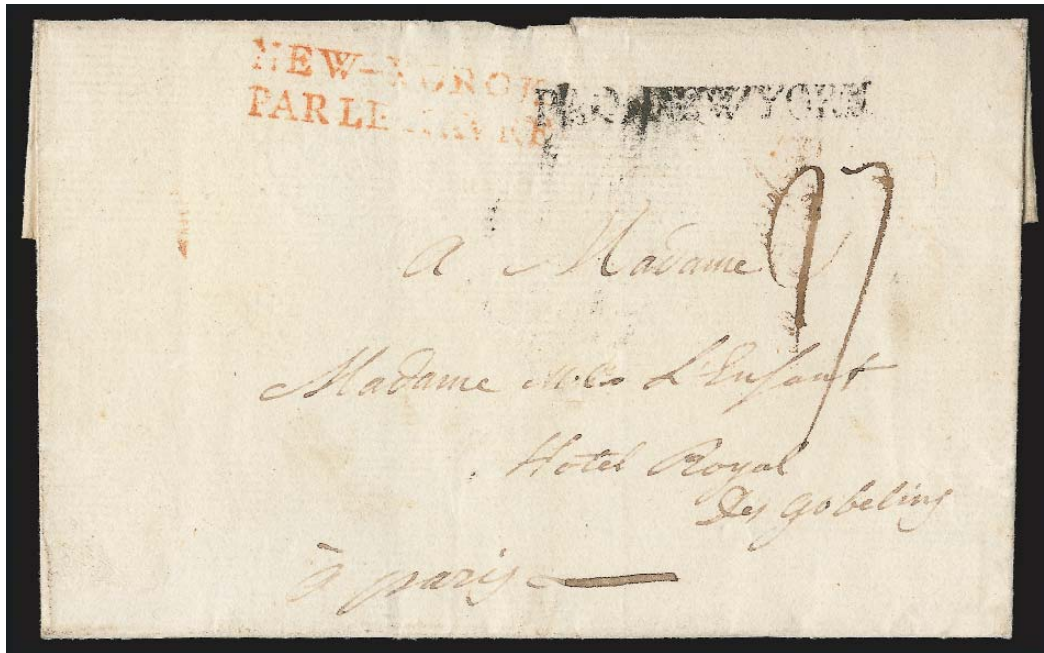 NEW-YORCK
PAR LE HAVRE
NEW YORK
a Madame
Madame L'Enfant
Hotel Royal
Des gobelins
à paris